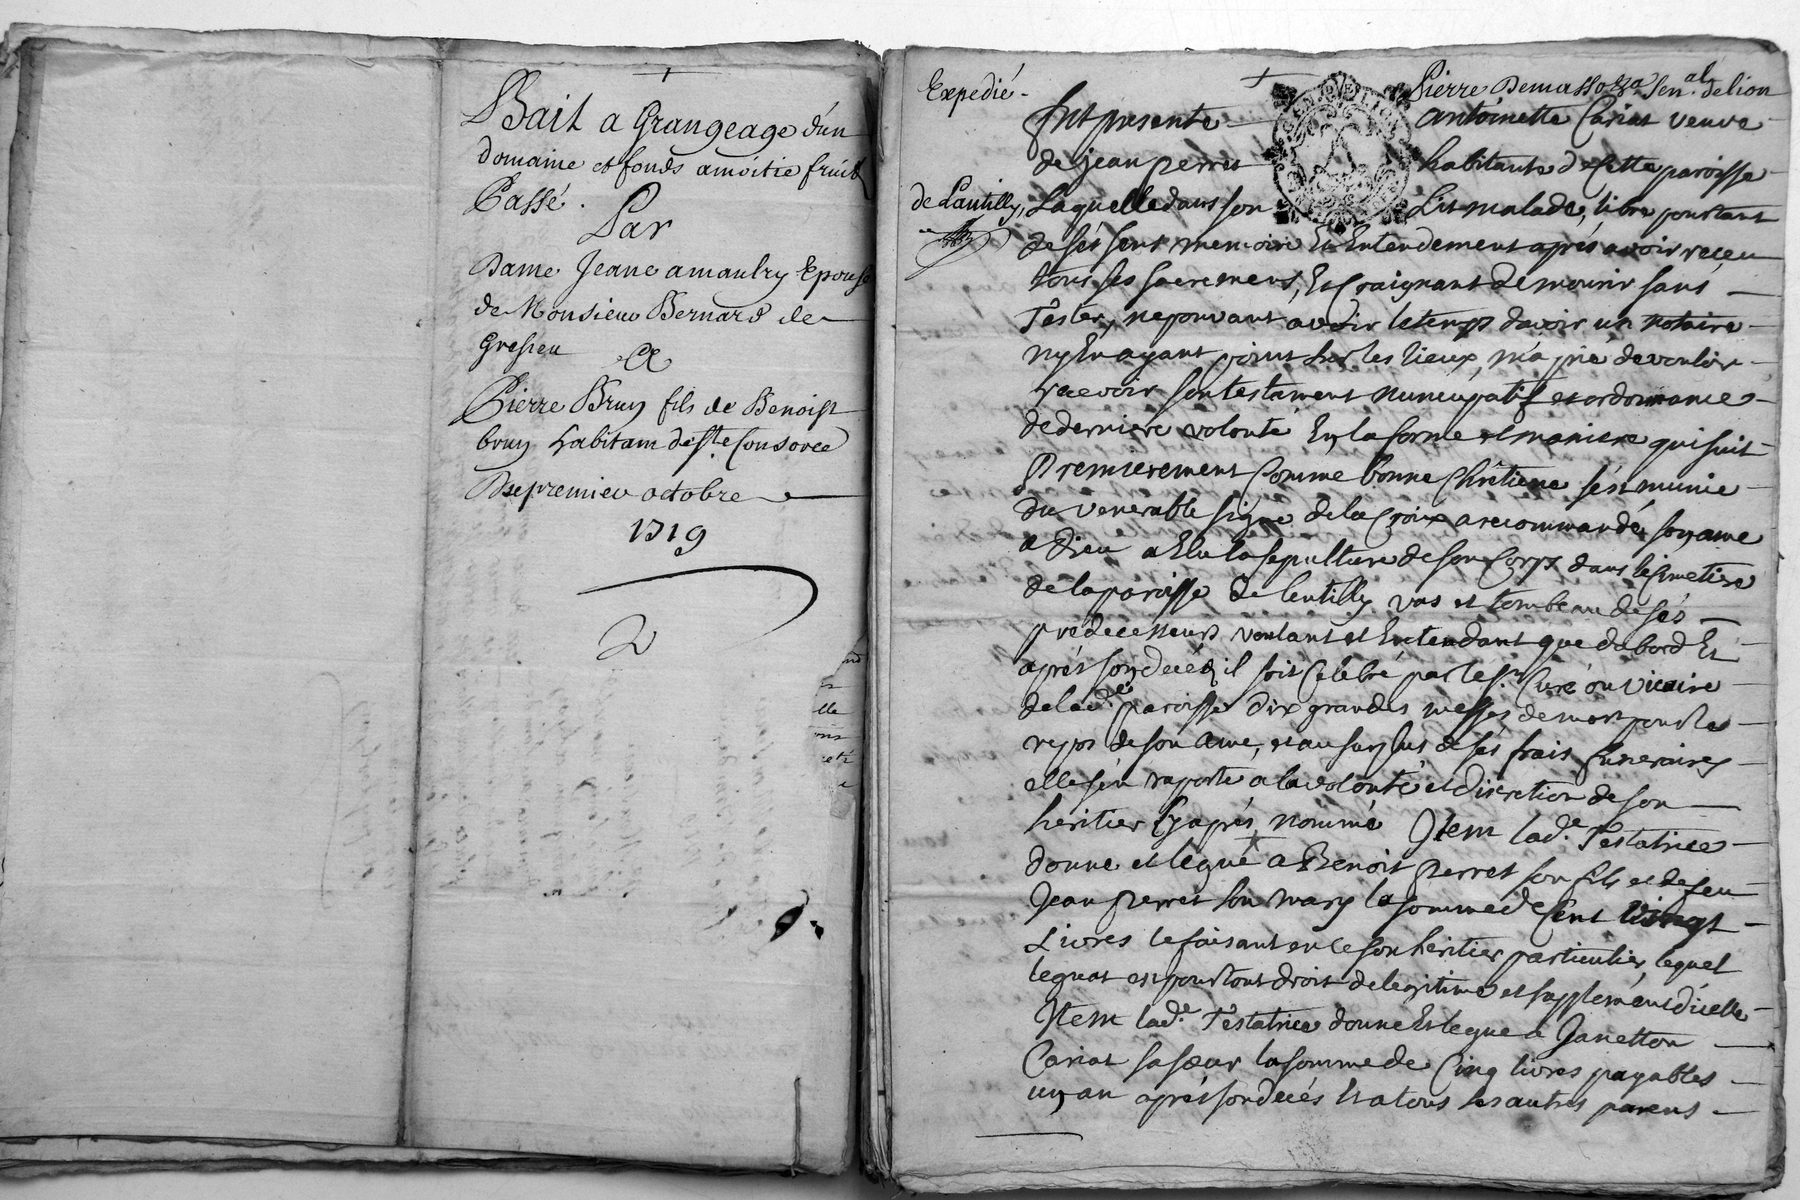 Bail a Grangeage d'un
domaine et fonds amoitie fruit
Passé.
Par
Dame Jeane amaulry Epouse
de Monsieur Bernard de
Gresieu
Et
Pierre Bruy fils de Benoist
bruy habitant de ste Consorce
Du premier octobre
1719
2
Expedié
Pierre Demasso Sen.al de lion
Fut presente antoinette Cariat veuve
de jean perret habitante de Cette paroisse
de Lantilly, Laquelle dans son Lit malade, libre pourtant
de sés sens memoire Et Entendement aprés avoir receu
tous ses sacremens, Et Craignant de mourir sans
Tester, ne pouvant avoir le temps davoir un notaire
ny En ayant point sur les lieux, m'a prié de vouloir
recevoir son testament nuncupatif et ordonnance
de derniere volonté En la forme et maniere qui suit
Premierement Comme bonne Chrêtiene s'est munie
du venerable signe de la Croix a recommandé son ame
a Dieu a Elu la sepulture de son Corps dans le Cimetiere
de la paroisse de lentilly vas et tombeau de sés
predecesseurs voulant et Entendant que dabord Et
aprés son decés il soit Celebré par le sr. Curé ou vicaire
de lad.e paroisse dix grandes messes de mort pour le
repos de son ame, et au surplus de sés frais funeraires
elle s'en raporte a la volonté et discretion de son
heritier Cy aprés nommé Item lad.e Testatrice
donne et legue a Benoit perret son fils et de feu
Jean perret son mary la somme de Cent vingt
Livres le faisant en ce son heritier particulier, lequel
leguat est pour tout droit de legitime et supplement d'icelle
Item lad.e Testatrice donne Et legue a Janetton
Cariat sa sœur la somme de Cinq livres payables
un an aprés son decés Et a tous ses autres parens